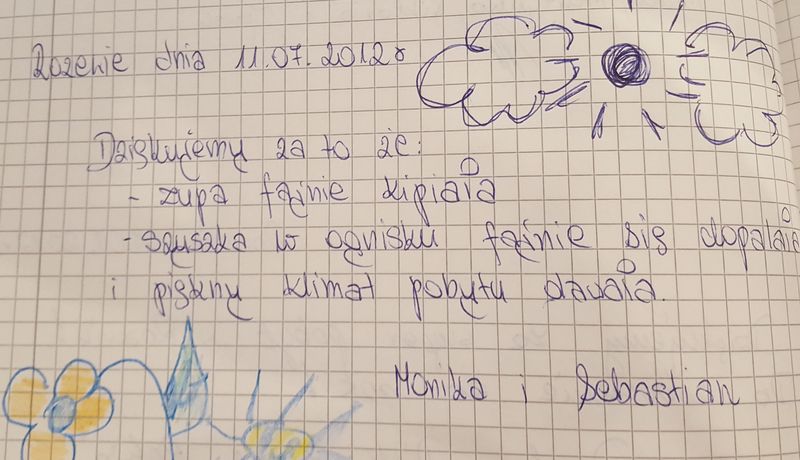 Rozenie dnia 11.07.2012r
Dziękujemy za to że:
- zupa fajnie kipiała
- w ognisku fajnie się dopalała
i piękny klimat pobytu dawała.
Monika i Sebastian